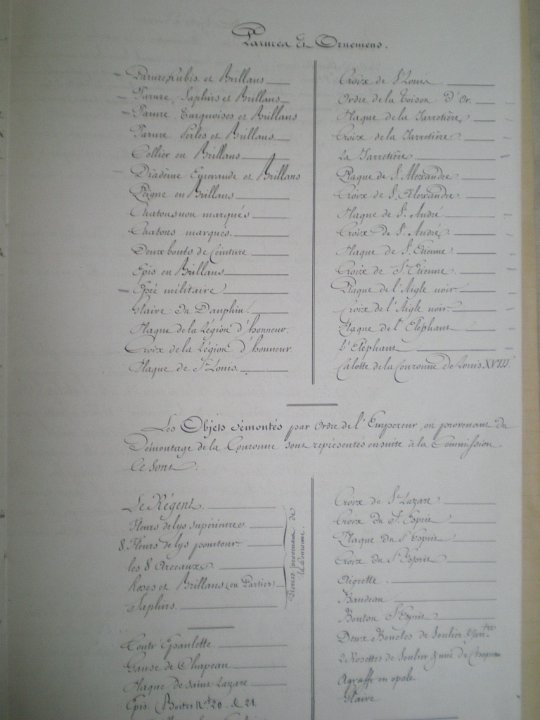 Parures et Ornemens.
Parure rubis et Brillans
Parure Saphirs et Brillans
Parure Turquoises et Brillans
Parure Perles et Brillans
Collier en Brillans
Diadème Emeraude et Brillans
Peigne en Brillans
Chatons non marqués
Chatons marqués
Deux bouts de Ceinture
Epis en Brillans
Epée militaire
Glaive du Dauphin
Plaque de la Légion d'honneur
Croix de la Légion d'honneur
Plaque de St Louis
Croix de St Louis
Ordre de la Toison d'Or.
Plaque de la Jarretière
Croix de la Jarretière
La Jarretière
Plaque de S. Alexandre
Croix de S. Alexandre
Plaque de S. André
Croix de S. André
Plaque de S. Etienne
Croix de St Etienne
Plaque de l'Aigle noir
Croix de l'Aigle noir
Plaque de l'Eléphant
L'Eléphant
Calotte de la Couronne de Louis XVIII
Les Objets démontés par Ordre de l'Empereur ou provenant du
Démontage de la Couronne sont représentés ensuite à la Commission.
Ce sont.
Le Régent
Fleurs de lys supérieure
8 Fleurs de lys pourtour
les 8 Arceaux
Roses et Brillans (en Partie)
Saphirs
Pierres provenant de
la Couronne
Contre Epaulette
Ganse de Chapeau
Plaque de Saint Lazare
Epis (Boites Nos 20 & 21
Croix de St Lazare
Croix du St Esprit
Plaque du St Esprit
Croix du St Esprit
Aigrette
Bandeau
Bouton St Esprit
Deux Boucles de Soulier
2 Rosettes de Soulier & une de Chapeau
Agraffe en opale
Glaive